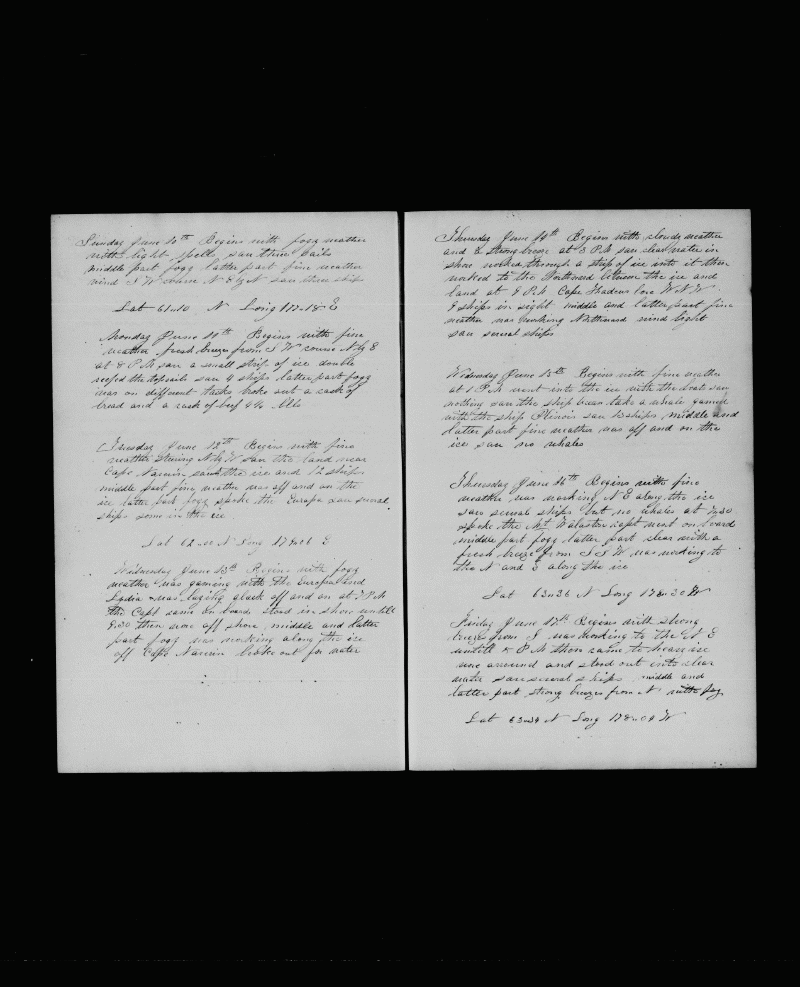 Sunday June 10th Begins with fogg weather
with light spells saw three sails
middle part fogg latter part fine weather
wind S W course N E by N saw three ships
Lat 61-10 N Long 177-18 E
Monday June 11th Begins with fine
weather fresh breeze from S W course N by E
at 8 P M saw a small strip of ice double
reefed the topsails saw 4 ships latter part fogg
was on different tacks broke out a cask of
bread and a cask of beef
Tuesday June 12th Begins with fine
weather Stering N by W saw the land near
Cape Navrin saw the ice and 12 ships
middle part fine weather was off and on the
ice latter part fogg spoke the Europa saw several
ships some in the ice
Lat 62-00 N Long 179-06 E
Wednesday June 13th Begins with fogg
weather was gaming with the Europa and
Lydia was laying aback off and on at P M
the Capt came on board stood in shore untill
8,30 then wore off shore middle and latter
part fogg was working along the ice
off Cape Navrin broke out for water
Thursday June 14th Begins with cloudy weather
and a strong breeze at 3 P M saw clear water in
shore worked through a strip of ice into it then
worked to the Northward between the ice and
land at 8 P M Cape Thadeus bore W N W
8 ships in sight middle and latter part fine
weather was working Northward wind light
saw several ships
Wednesday June 15th Begins with fine weather
at 1 P M went into the ice with the boats saw
nothing saw the ship take a whale gamed
with the ship Illinois saw 15 ships middle and
latter part fine weather was off and on the
ice saw no whales
Thursday June 16th Begins with fine
weather was working N E along the ice
saw several ships but no whales at 7,30
spoke the Mt Walaston capt went on board
middle part fogg latter part clear with a
fresh breeze from S S W was working to
the N and E along the ice
Lat 63-36 N Long 178-30 W
Friday June 17th Begins with strong
breezes from S was working to the N E
untill P M then came to heavy ice
wore around and stood out into clear
water saw several ships middle and
latter part strong breezes from N with fog
Lat 63-34 N Long 178-04 W